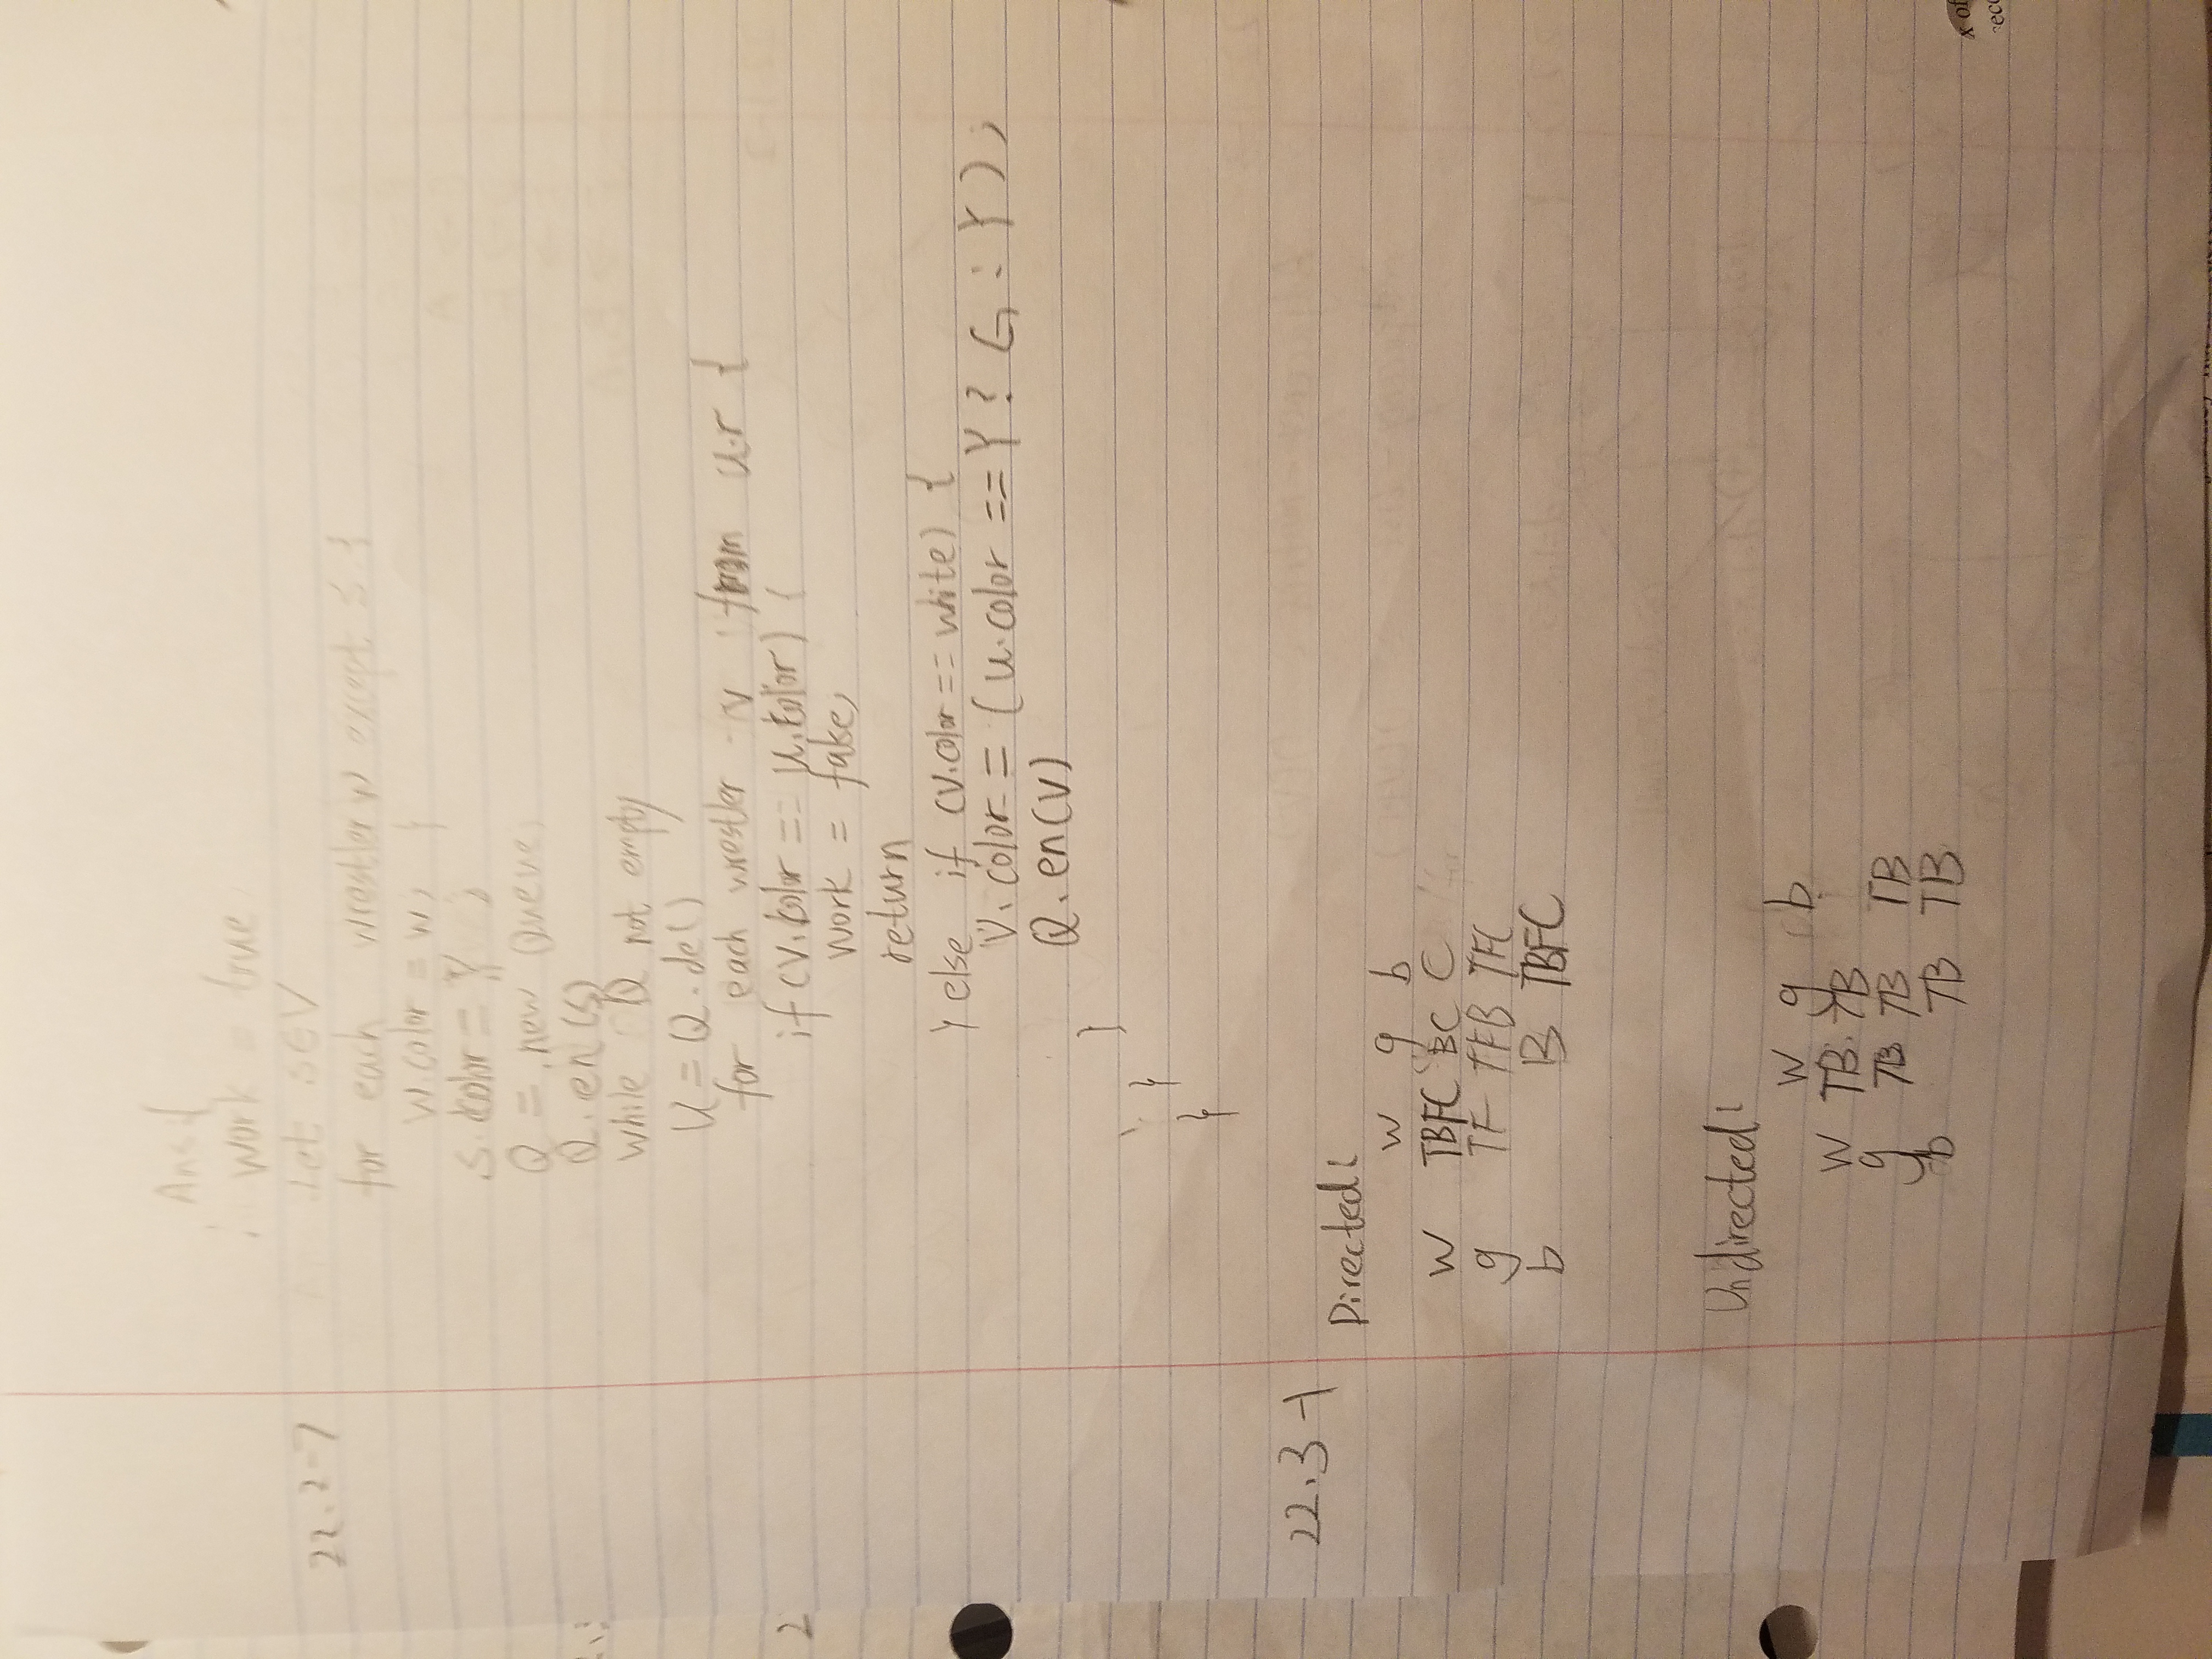 Ans {
work = true
22.2-7
Let s∈V
for each wrestler w except s {
w.color = w; }
s.color = Y ;
Q = new Queue;
Q.en(s)
while Q not empty
U = Q.de()
for each wrestler v from u.r {
if (v.color == u.color) {
work = false;
return
} else if (v.color == white) {
v.color = (u.color == Y ? G : Y);
Q.en(v)
}
}
}
2
22.3-1
Directed:
w g b
w TBFC BC C
g TF TFB TFC
b B TBFC
Undirected:
w g b
w TB TB
g TB TB TB
b TB TB
x of